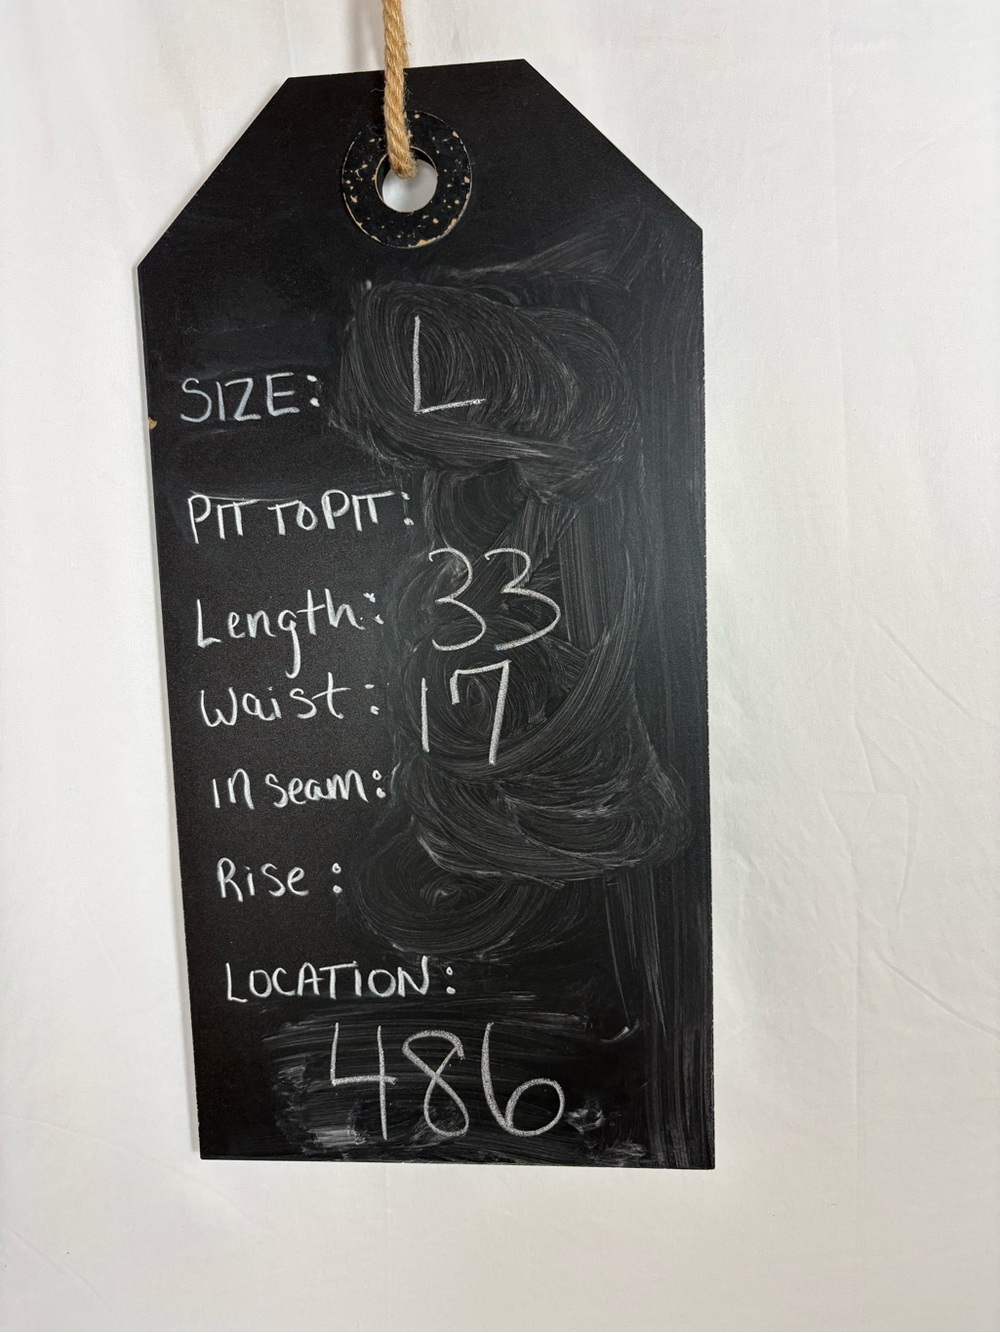 SIZE: L
PIT TO PIT:
Length: 33
Waist: 17
in seam:
Rise:
LOCATION:
486